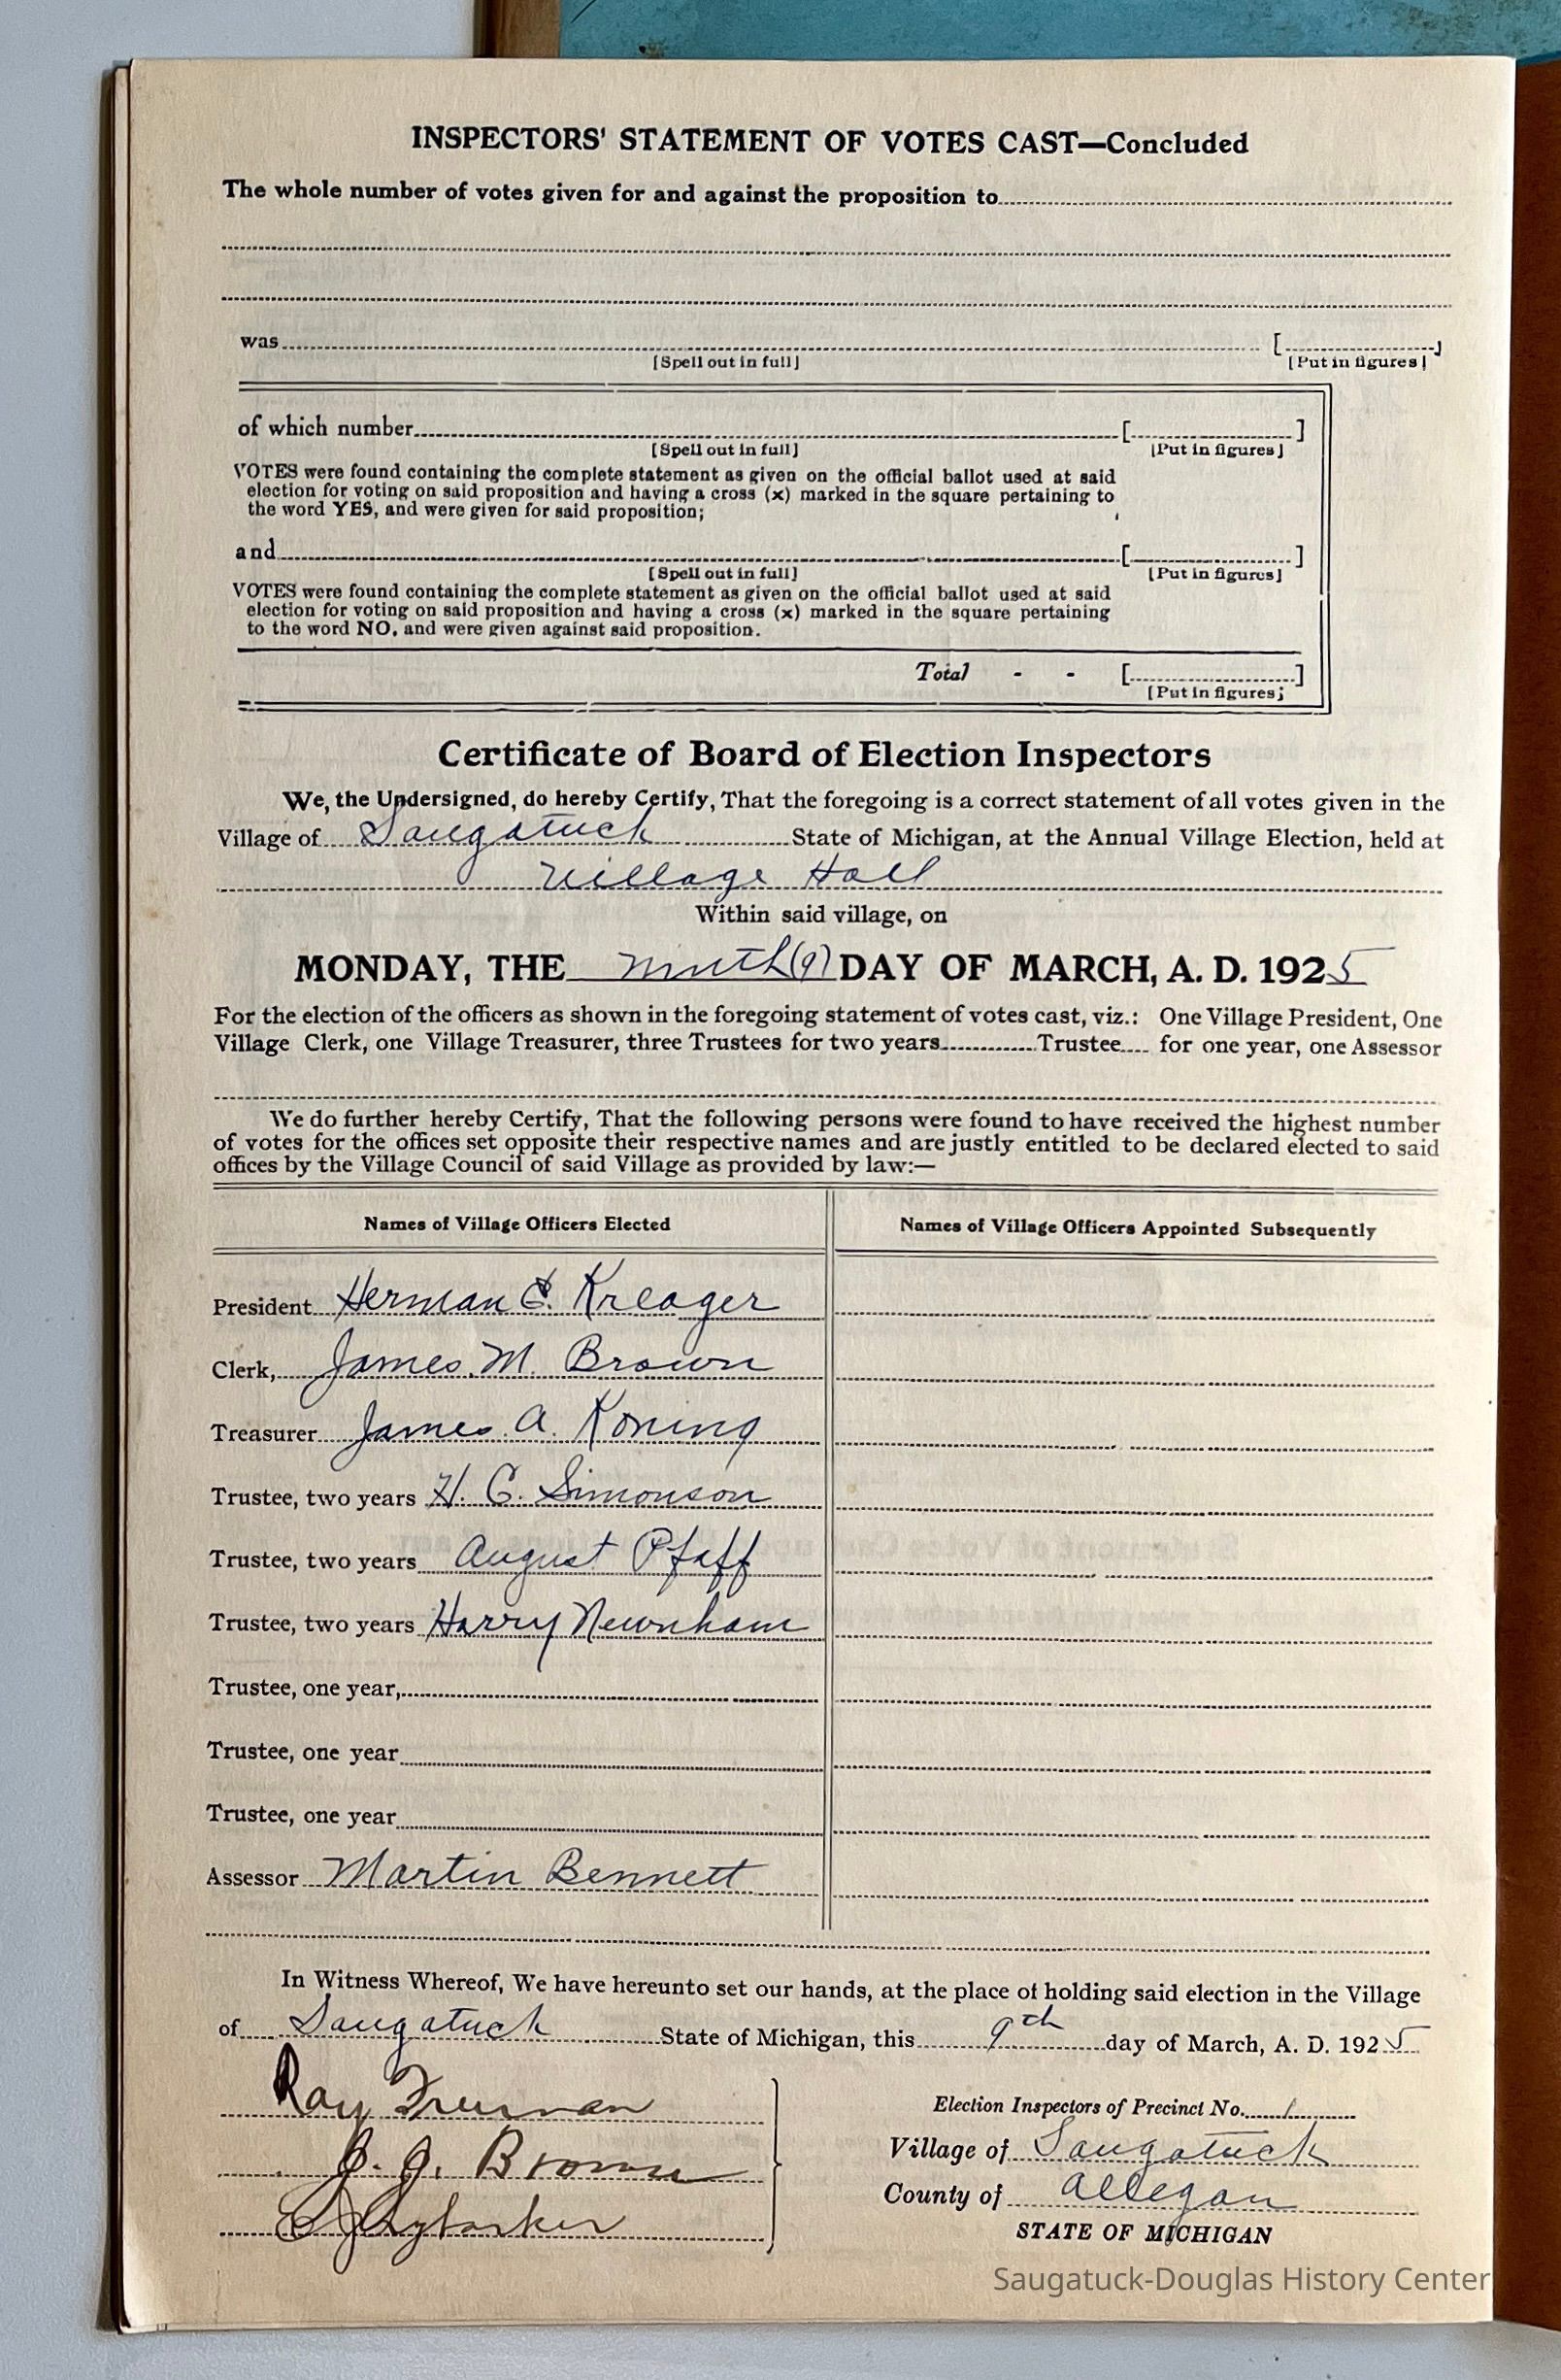 INSPECTORS' STATEMENT OF VOTES CAST—Concluded
The whole number of votes given for and against the proposition to
was [ ]
[Spell out in full] [Put in figures]
of which number [ ]
[Spell out in full] [Put in figures]
VOTES were found containing the complete statement as given on the official ballot used at said
election for voting on said proposition and having a cross (x) marked in the square pertaining to
the word YES, and were given for said proposition;
and [ ]
[Spell out in full] [Put in figures]
VOTES were found containing the complete statement as given on the official ballot used at said
election for voting on said proposition and having a cross (x) marked in the square pertaining
to the word NO, and were given against said proposition.
Total - - [ ]
[Put in figures]
Certificate of Board of Election Inspectors
We, the Undersigned, do hereby Certify, That the foregoing is a correct statement of all votes given in the
Village of Saugatuck State of Michigan, at the Annual Village Election, held at
Village Hall
Within said village, on
MONDAY, THE ninth (9) DAY OF MARCH, A. D. 1925
For the election of the officers as shown in the foregoing statement of votes cast, viz.: One Village President, One
Village Clerk, one Village Treasurer, three Trustees for two years Trustee for one year, one Assessor
We do further hereby Certify, That the following persons were found to have received the highest number
of votes for the offices set opposite their respective names and are justly entitled to be declared elected to said
offices by the Village Council of said Village as provided by law:—
Names of Village Officers Elected Names of Village Officers Appointed Subsequently
President Herman E. Kreager
Clerk, James M. Brown
Treasurer James A. Koning
Trustee, two years H. C. Simonson
Trustee, two years August Pfaff
Trustee, two years Harry Newnham
Trustee, one year,
Trustee, one year
Trustee, one year
Assessor Martin Bennett
In Witness Whereof, We have hereunto set our hands, at the place of holding said election in the Village
of Saugatuck State of Michigan, this 9th day of March, A. D. 1925
Ray
J. J. Brown
Election Inspectors of Precinct No. 1
Village of Saugatuck
County of Allegan
STATE OF MICHIGAN
Saugatuck-Douglas History Center